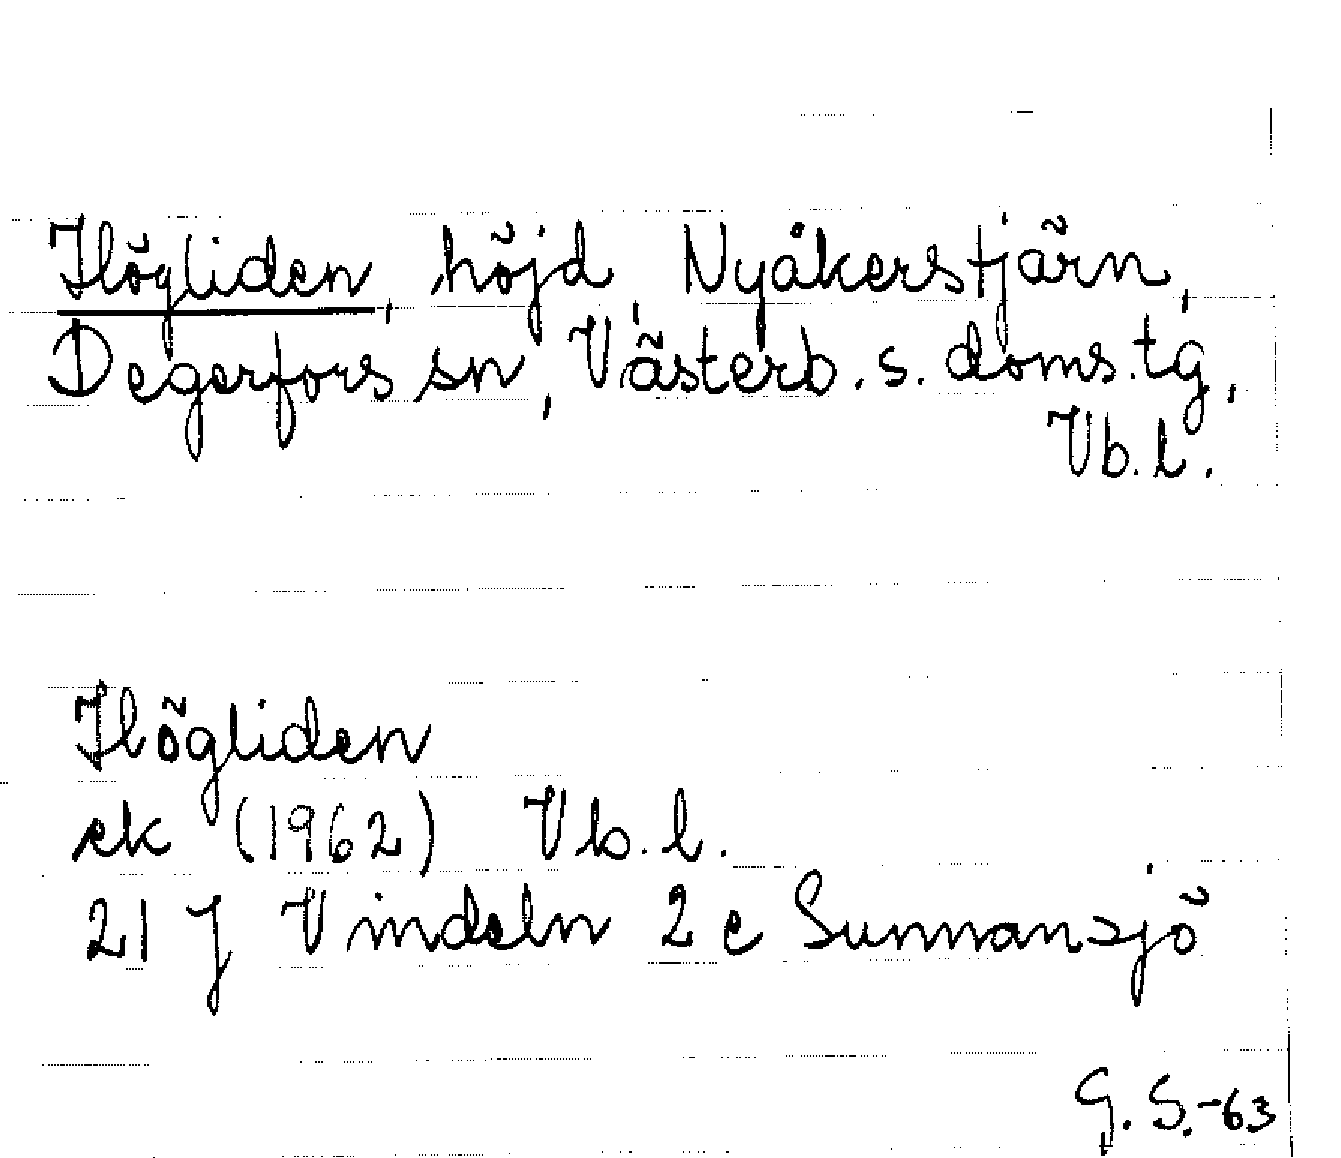 Högliden, höjd, Nyåkerstjärn,
Degerfors sn, Västerb. s. doms. tg,
Vb. l.
Högliden
ek (1962) Vb. l.
21 J Vindeln 2 c Sunnansjö
G. S. -63